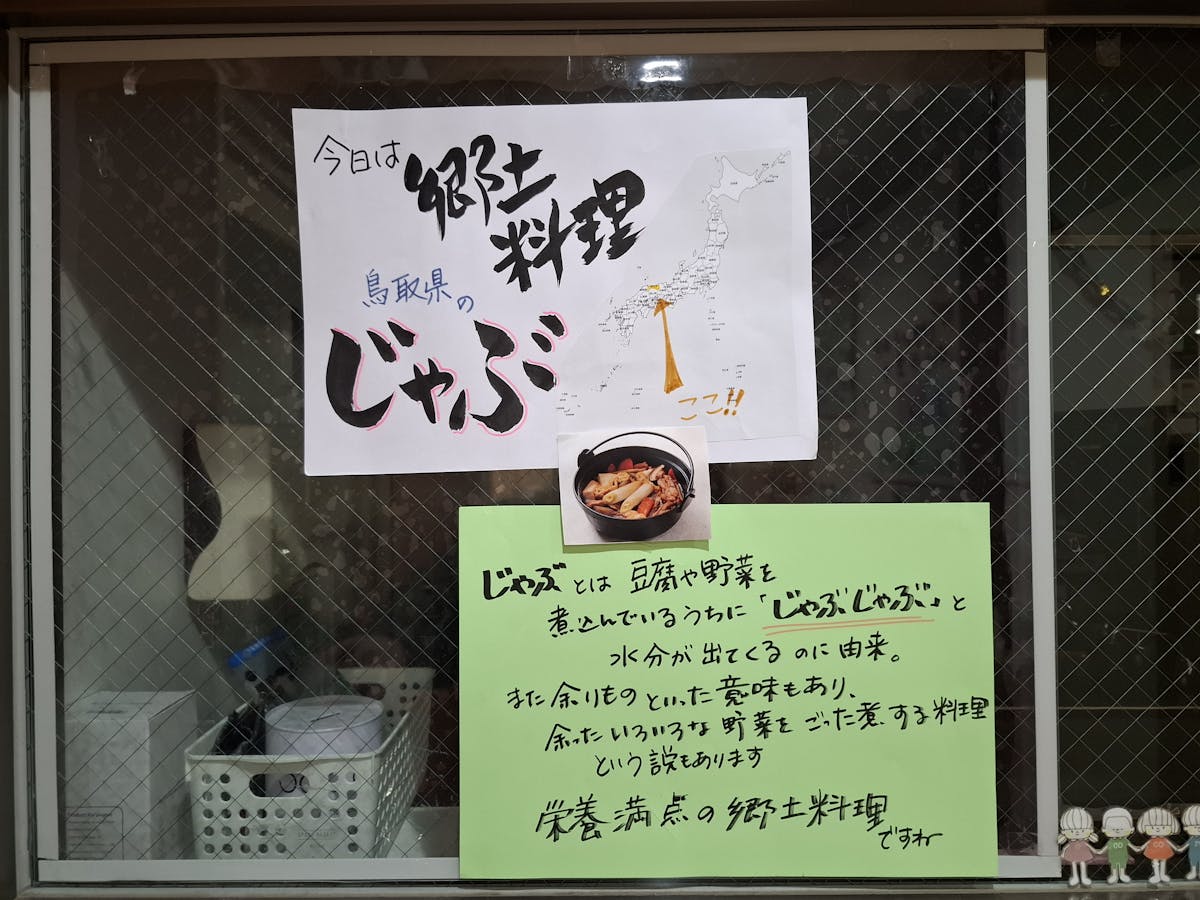 今日は
郷土
料理
鳥取県の
じゃぶ
ここ!!
じゃぶとは 豆腐や野菜を
煮込んでいるうちに「じゃぶじゃぶ」と
水分が出てくるのに由来。
また余りものといった意味もあり、
余ったいろいろな野菜をごった煮する料理
という説もあります
栄養満点の郷土料理
ですね